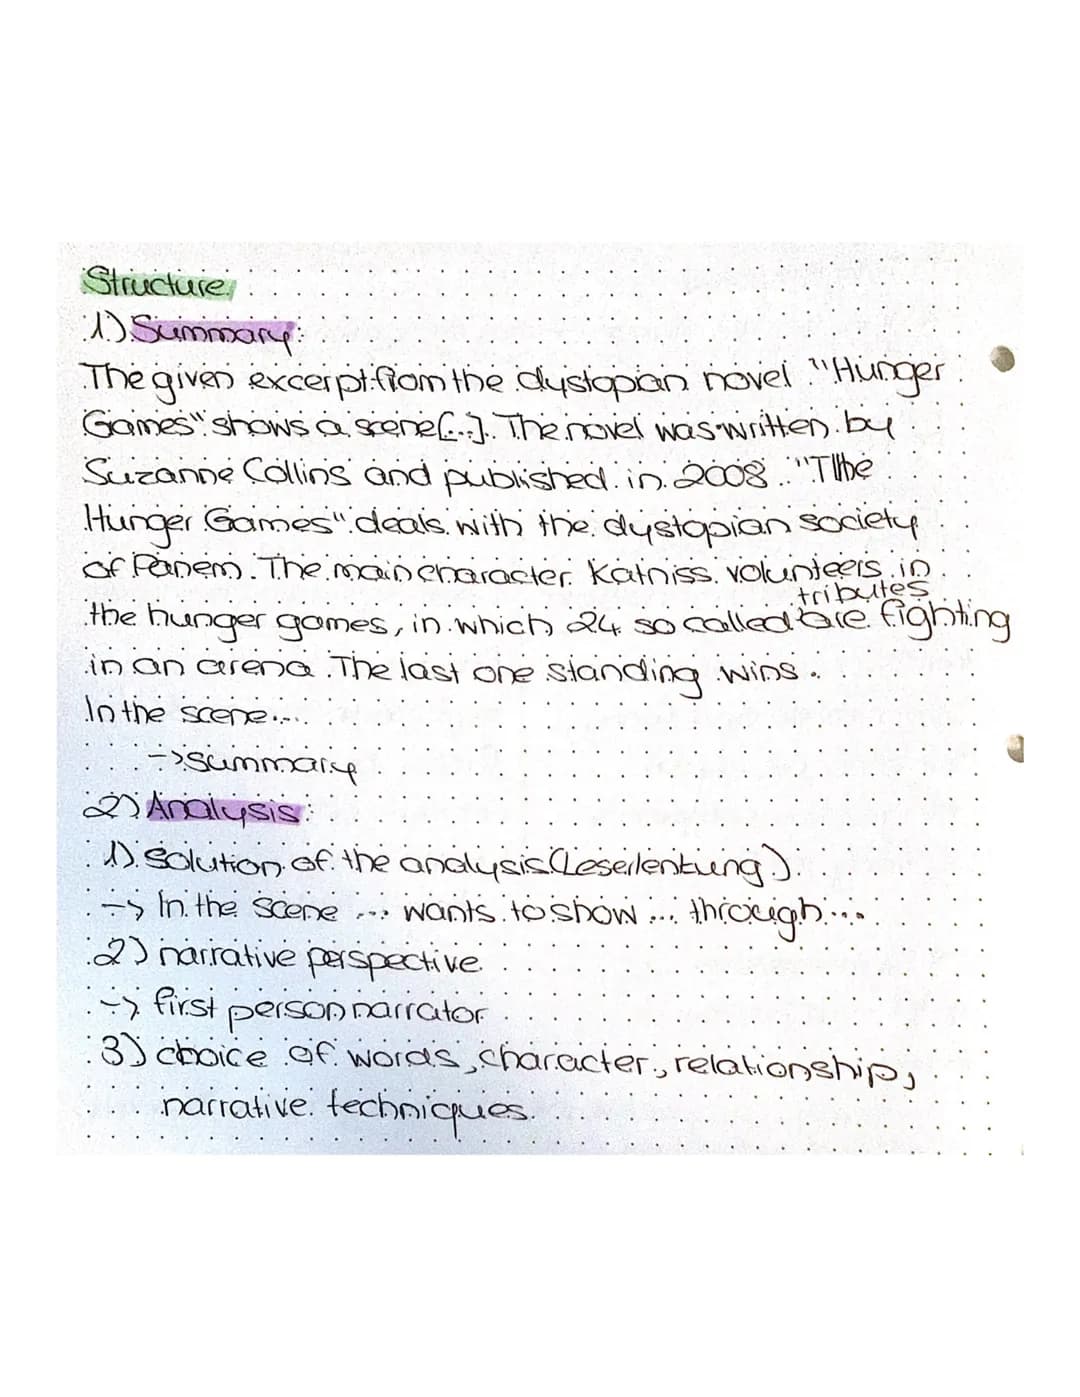 Structure:
1) Summary:
The given excerpt from the dystopian novel "Hunger
Games" shows a scene [...]. The novel was written by
Suzanne Collins and published in 2008. "The
Hunger Games" deals with the dystopian society
of Panem. The main character Katniss volunteers in
tributes
the hunger games, in which 24 so called are fighting
in an arena. The last one standing wins.
In the scene....
-> summary
2) Analysis:
1) solution of the analysis (Leserlenkung)
-> In the scene ... wants to show ... through...
2) narrative perspective
-> first person narrator
3) choice of words, character, relationship,
narrative techniques.